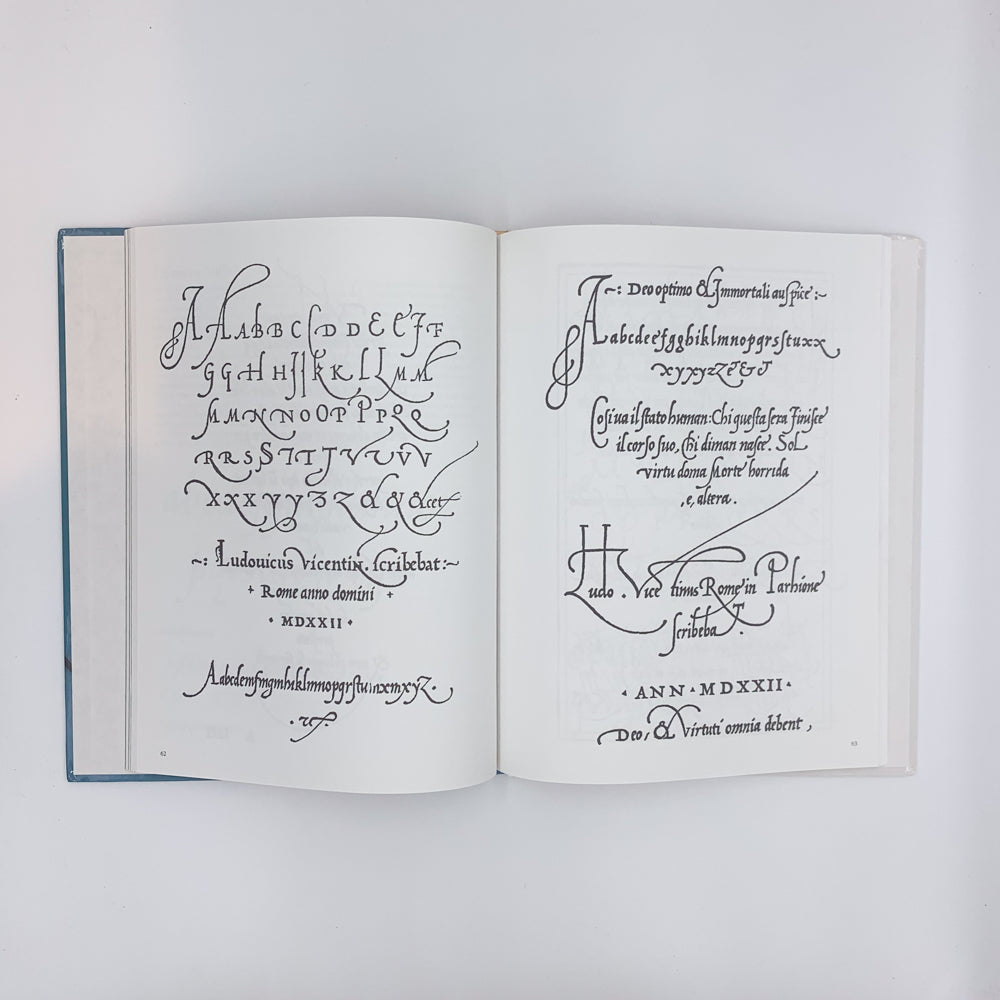 A A A B B C C D D E E F F
G G H H I I K K L L M M
M M N N N O O P P P Q Q
R R S S T T T V V V V
X X X Y Y 3 Z & & & cet
~: Ludouicus Vicentin. ſcribebat :~
+ Rome anno domini +
· MDXXII ·
62
~: Deo optimo & Immortali auſpice :~
Aabcdeefggbiklmnopqrsſtuxx
xyxyzZ
Coſi ua il ſtato human: Chi queſta ſera finiſce
il corſo ſuo, Chi diman naſce. Sol
virtu doma Morte horrida
,e, altera.
Ludo. Vicetinus Rome in Parhione
ſcribebaT.
· ANN · MDXXII ·
Deo, & Virtuti omnia debent,
63